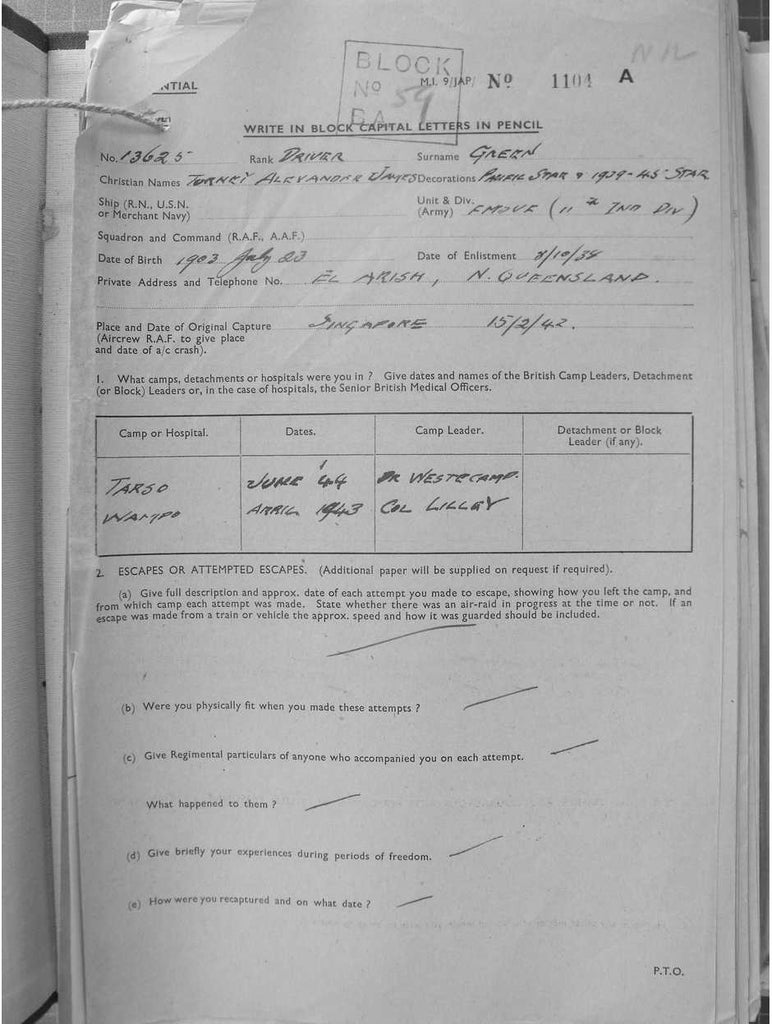 NTIAL
BLOCK
No 59
BA
M.I. 9/JAP/ No 1104 A
NIL
WRITE IN BLOCK CAPITAL LETTERS IN PENCIL
No. 13625 Rank DRIVER Surname GREEN
Christian Names ALEXANDER JAMES Decorations PACIFIC STAR & 1939-45 STAR
Ship (R.N., U.S.N. or Merchant Navy)
Unit & Div. (Army) (11th IND DIV)
Squadron and Command (R.A.F., A.A.F.)
Date of Birth 1903 July 23 Date of Enlistment /10/38
Private Address and Telephone No. EL ARISH, N. QUEENSLAND.
Place and Date of Original Capture SINGAPORE 15/2/42.
(Aircrew R.A.F. to give place
and date of a/c crash).
1. What camps, detachments or hospitals were you in ? Give dates and names of the British Camp Leaders, Detachment
(or Block) Leaders or, in the case of hospitals, the Senior British Medical Officers.
Camp or Hospital. Dates. Camp Leader. Detachment or Block Leader (if any).
TARSO JUNE 44 DR WESTECAMP.
WAMPO APRIL 1943 COL LILLEY
2. ESCAPES OR ATTEMPTED ESCAPES. (Additional paper will be supplied on request if required).
(a) Give full description and approx. date of each attempt you made to escape, showing how you left the camp, and
from which camp each attempt was made. State whether there was an air-raid in progress at the time or not. If an
escape was made from a train or vehicle the approx. speed and how it was guarded should be included.
(b) Were you physically fit when you made these attempts ?
(c) Give Regimental particulars of anyone who accompanied you on each attempt.
What happened to them ?
(d) Give briefly your experiences during periods of freedom.
(e) How were you recaptured and on what date ?
P.T.O.